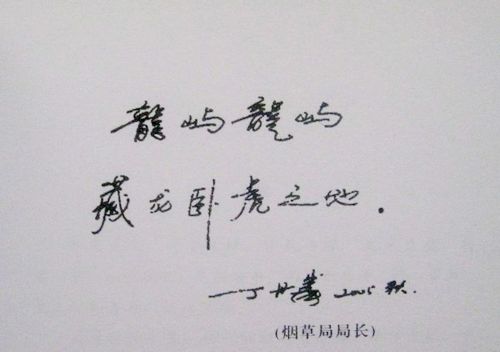 龍屿龍屿
藏龙卧虎之地.
——丁世義 2005 秋.
(烟草局局长)